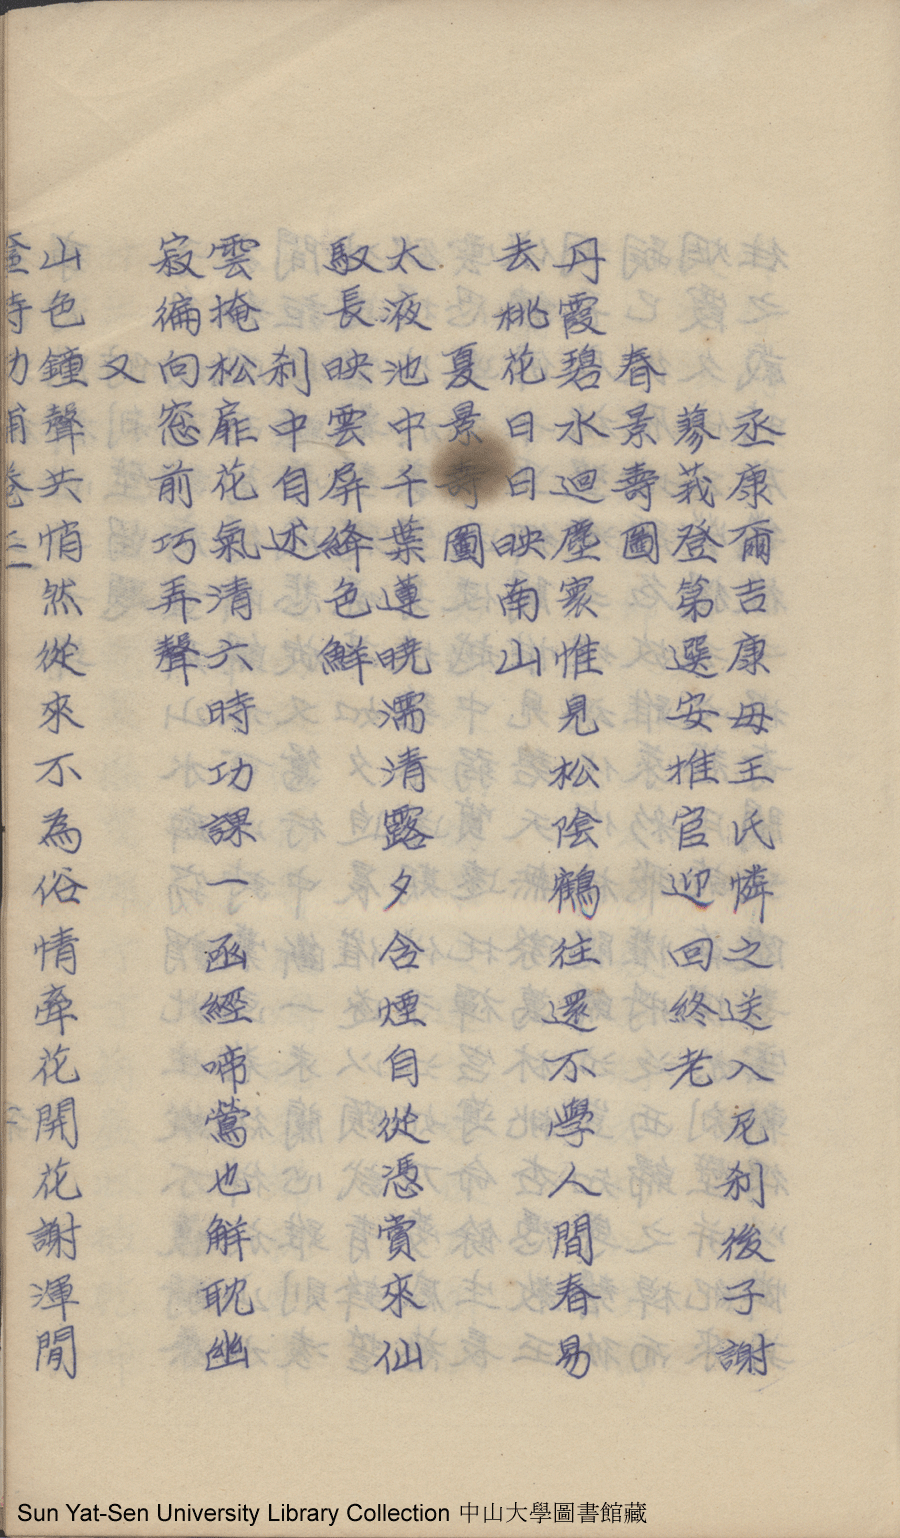 丞康爾吉康毋王氏憐之送入尼刹後子謝
蓼莪登第選安推官迎回終老
春景壽圖
丹霞碧水迴塵寰惟見松陰鶴往還不學人間春易
去桃花日日映南山
夏景壽圖
太液池中千葉蓮曉濡清露夕含煙自從憑賞來仙
馭長映雲屏絳色鮮
刹中自述
雲掩松扉花氣清六時功課一函經啼鶯也解耽幽
寂徧向窓前巧弄聲
又
山色鐘聲共悄然從來不為俗情牽花開花謝渾閒
Sun Yat-Sen University Library Collection 中山大學圖書館藏